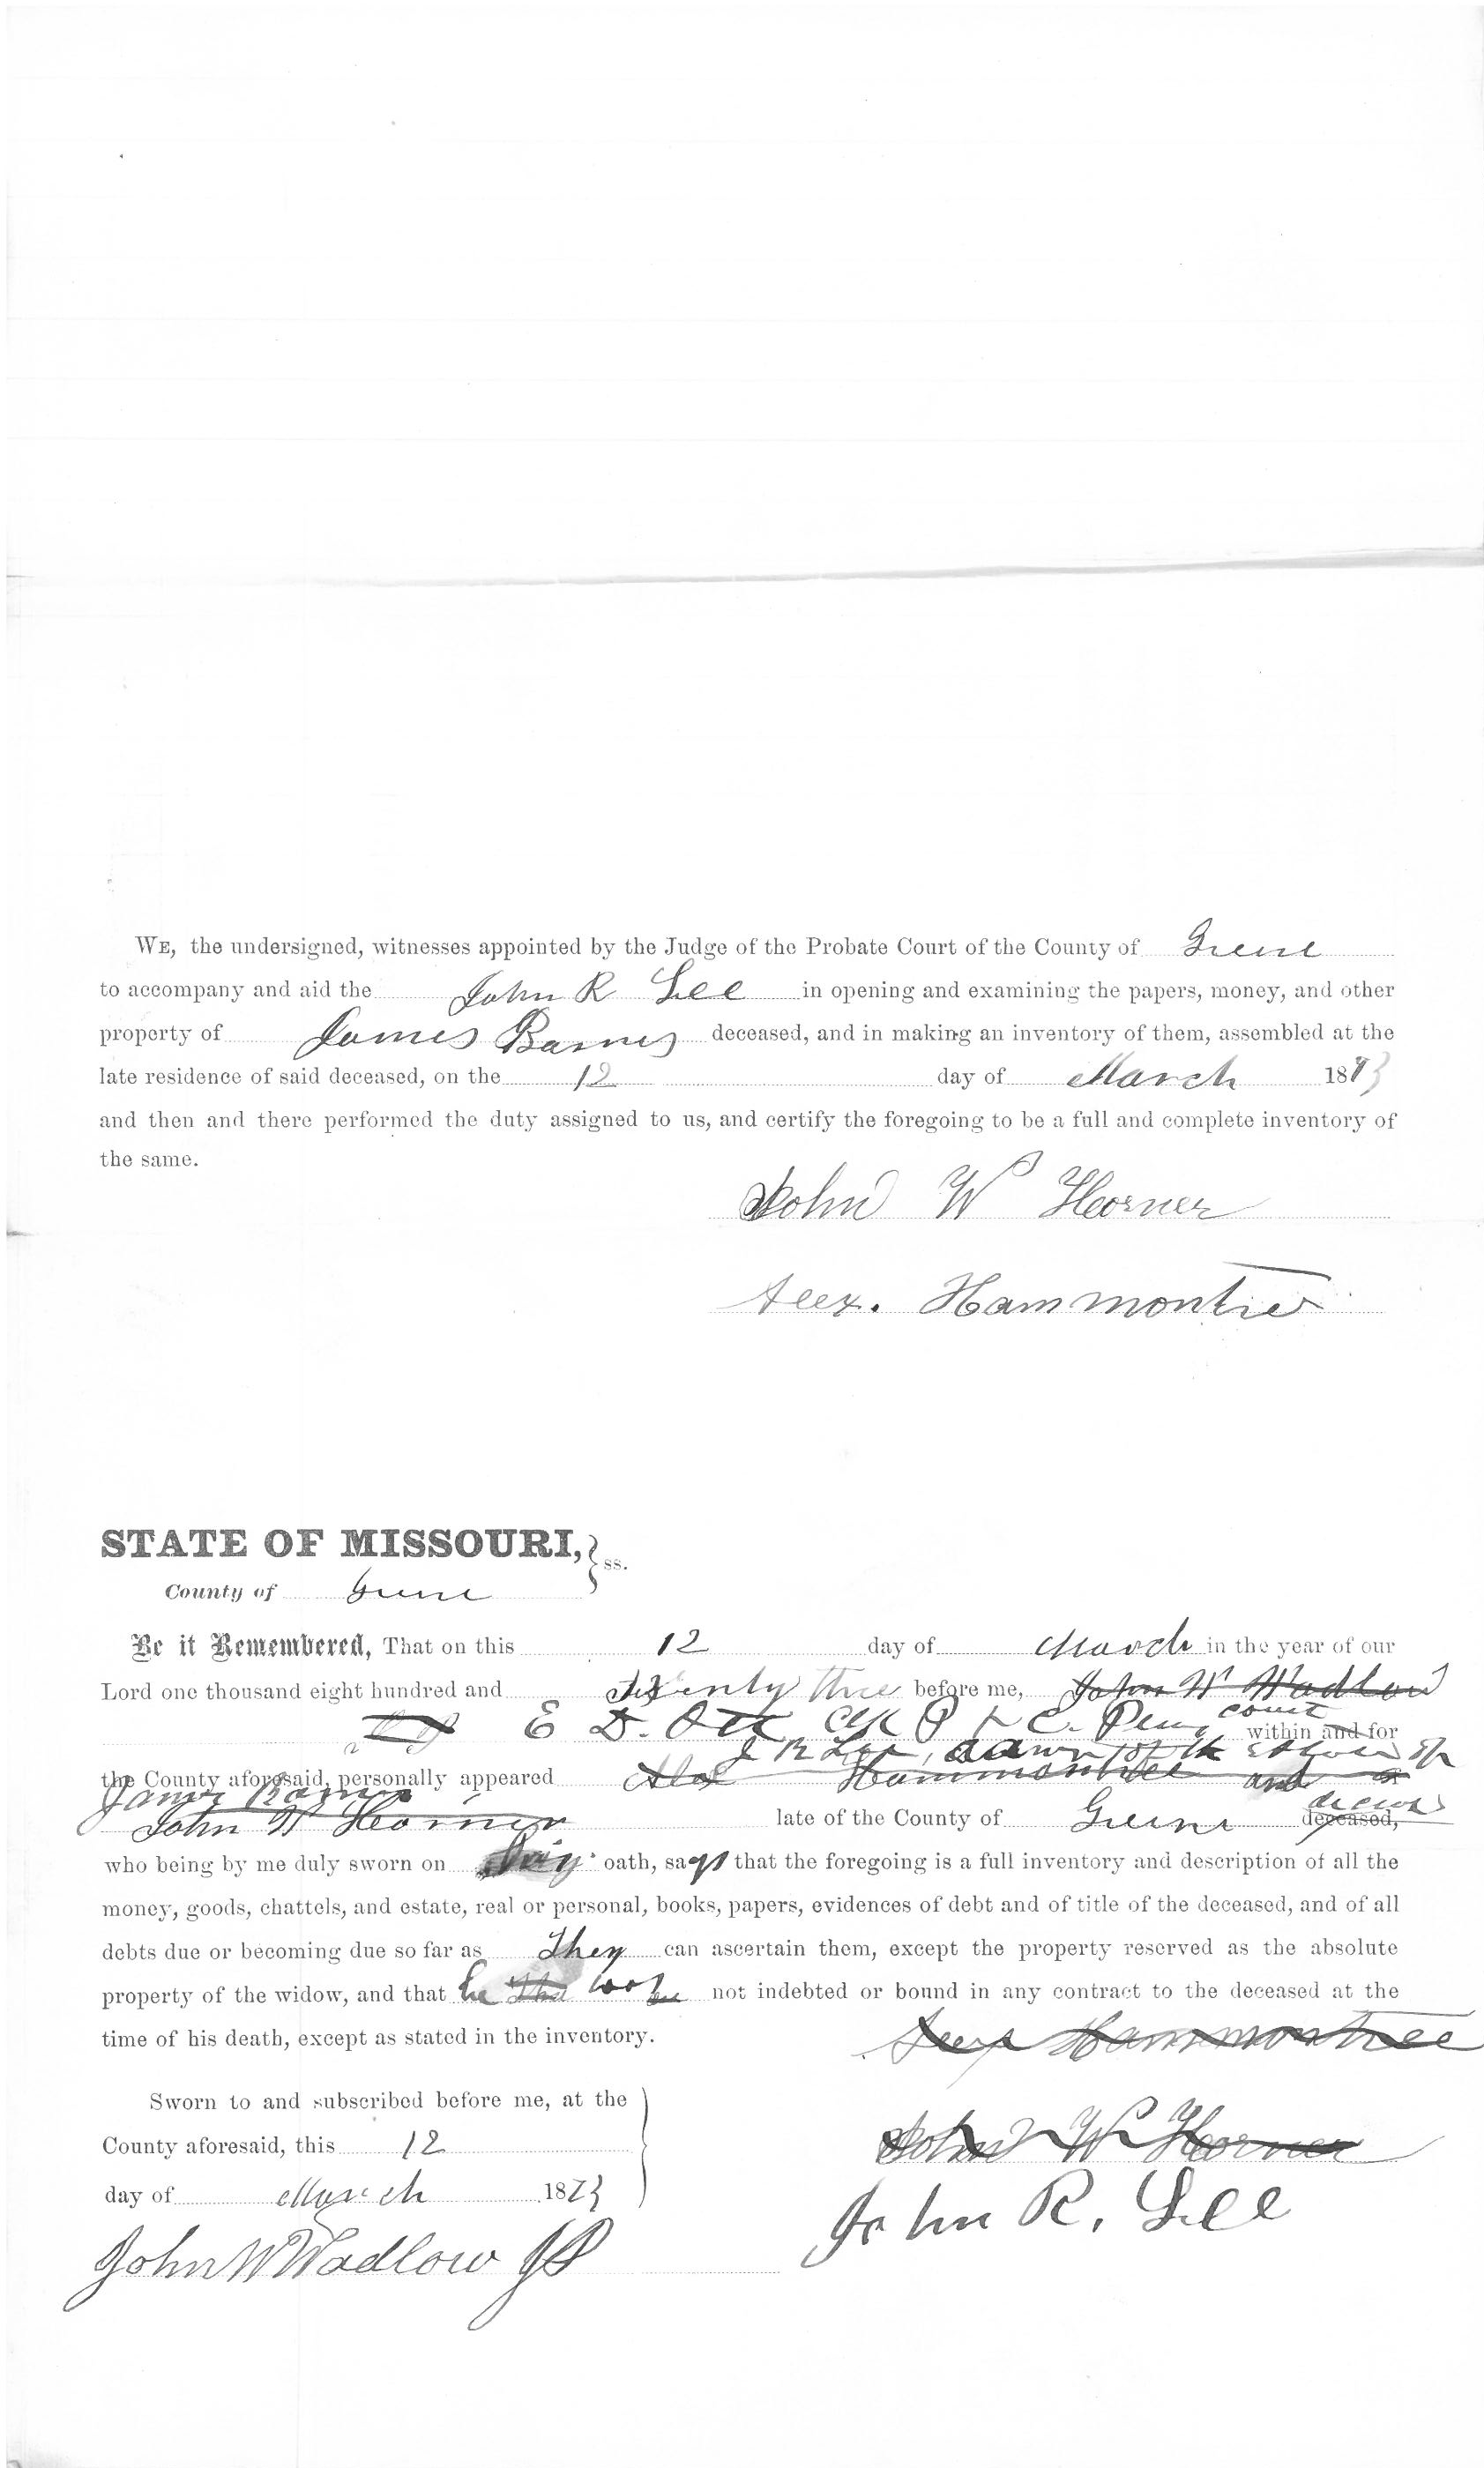 WE, the undersigned, witnesses appointed by the Judge of the Probate Court of the County of Greene
to accompany and aid the John R Lee in opening and examining the papers, money, and other
property of James Barnes deceased, and in making an inventory of them, assembled at the
late residence of said deceased, on the 12 day of March 1873
and then and there performed the duty assigned to us, and certify the foregoing to be a full and complete inventory of
the same.
John W Horner
Alex. Hammontree
STATE OF MISSOURI, } ss.
County of Greene
Be it Remembered, That on this 12 day of March in the year of our
Lord one thousand eight hundred and seventy three before me, John W Wadlow
E D. Ott Clk P & C. Pleas court within and for
J R Lee, admr of the estate of
the County aforesaid, personally appeared Alex Hammontree and
James Barnes
John W Horner late of the County of Greene deceased,
who being by me duly sworn on oath, says that the foregoing is a full inventory and description of all the
money, goods, chattels, and estate, real or personal, books, papers, evidences of debt and of title of the deceased, and of all
debts due or becoming due so far as They can ascertain them, except the property reserved as the absolute
property of the widow, and that he not indebted or bound in any contract to the deceased at the
time of his death, except as stated in the inventory.
Alex Hammontree
Sworn to and subscribed before me, at the
County aforesaid, this 12
John W Horner
day of March 1873
John R. Lee
John W Wadlow JP